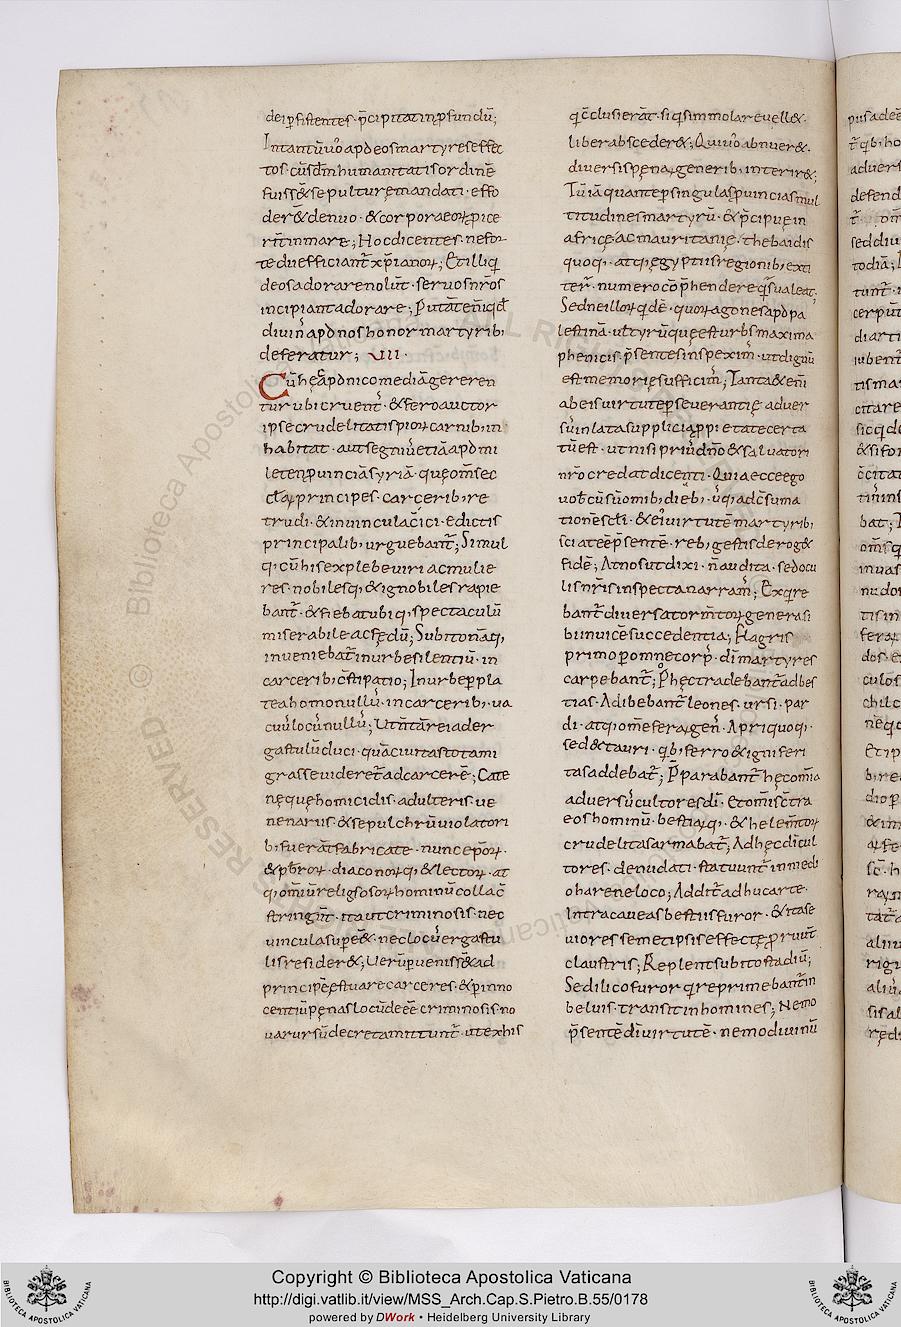 dei p̄sistentes · p̄cipitati in p̄fundū;
Intantū u̓o apđ eos martyres effec
tos · cū sđm humanitatis ordinē
fuiss& sepulturę mandati · effo
der& denuo · & corpora eoꝝ p̄ice
rīt in mare; Hoc dicentes · ne for
te du efficiant̄ xp̄ianoꝝ; Et illi q̇
deos adorare nolūt · seruos nr̄os
incipiant adorare; Putātenī qđ
diuin̓ apđ nos honor martyrib;
deferatur; VII ·
Cū hęc apđ nicomediā gereren
tur ubi cruent̓ · & fero auctor
ipse crudelitatis pioꝝ carnib; in
habitat · aut segni̓ u̓ etiā apđ mi
letenꝓuinciā syriā · que om̄s ec
cłaꝝ principes · carcerib; re
trudi · & in uinculac̓ ici · edictis
principalib; urguebant̄; Simul
q; cū his ex plebe uiri ac mulie
res · nobilesq; & ignobiles rapie
bant̄ · & fiebat ubiq; spectaculū
miserabile ac fędū; Subito nāq;
inueniebat̄ in urbe silentiū · in
carcerib; c̄stipatio; In urbe p pla
tea homo nullu̓ · in carcerib; ua
cuu̓ locu̓ nullu̓; Ut n̄ tā rei ader
gastulū duci · quā ciuitas tota mi
grasse uideret̄ ad carcerē; Cate
nę que homicidis · adulteris · ue
nenariis · & sepulchrū uiolatori
b; fuerāt fabricate · nunc ep̄oꝝ ·
& pb̄roꝝ · diaconoꝝ q; & lectoꝝ · at
q; omīu religiosoꝝ hominū colla c̄
stringūt · ita ut criminosis · nec
uincula supēē& · nec locu̓ ergastu
lis resider&; Uerū puenissē& ad
principē ęstuare carceres · & p̄ inno
centiū pęnas locū deēē criminosis · no
uarursū decreta mittunt̄ · ut ex his
qͥ c̄clusi erāt · si qͥs immolare uell& ·
liber absceder&; Qui u̓o abnuer& ·
diuersis pęnaꝝ generib; interir&;
Tū iā quante p singulas ꝓuincias mul
titudines martyrū · & p̄cipue in
africę · ac mauritanię · thebaidis
quoq; · atq; ęgyptiis regionib; exti
ter̄ · numero cōp̄hendere qͥs ualeat;
Sed ne illoꝝ qͥdē · quoꝝ agones apđ pa
lestinā · ut̓ tyrū quę est urbs maxima
phenicis · p̄sentes inspexim̓ · ut dignū
est memorię sufficim̓; Tanta & enī
ab eis uirtute pseuerantię aduer
su̓ inlata suppliciaꝝ ppietate certa
tū est · ut nisi qui s priu̓ dn̄o & saluatori
nr̄o credat dicenti · Quia ecce ego
uobc̄ sū omib; dieb; · u̓q; ad c̄suma
tionē scłi · & ei̓ uirtutē martyrib;
sciat eē p̄sentē · reb; gestis derog&
fidē; At nos ut dixi · n̄ audita · sed ocu
lis nr̄is inspecta narram̓; Exqͥre
bant̄ diuersa tormtoꝝ genera si
bi inuicē succedentia; Flagris
primo p omne corp̓ · di̓ martyres
carpebant̄; P̄ hęc tradebant̄ ad bes
tias · Adibebant̄ leones · ursi · par
di · atq; om̄e feraꝝ gen̓ · Apri quoq; ·
sed & tauri · qͥb; ferro & igni feri
tas addebat̄; P̄parabant̄ hęc om̄ia
aduersu̓ cultores dī · Et om̄is c̄tra
eos hominū · bestiaꝝ q; · & helem̄toꝝ
crudelitas armabat̄; Ad hęc di̓ cul
tores · denudati · statuunt̄ in medi
o harene loco; Addit̄ ad huc arte ·
Intra caueas bestiis furor · & ita se
uiores semetipsis effectę ꝓruūt
claustris; Replent subito stadiū;
Sed ilico furor qͥ reprimebant̄ in
beluis · transit in homines; Nemo
p̄sentē di̓ uirtutē · nemo diuinū
Copyright © Biblioteca Apostolica Vaticana
http://digi.vatlib.it/view/MSS_Arch.Cap.S.Pietro.B.55/0178
powered by DWork • Heidelberg University Library